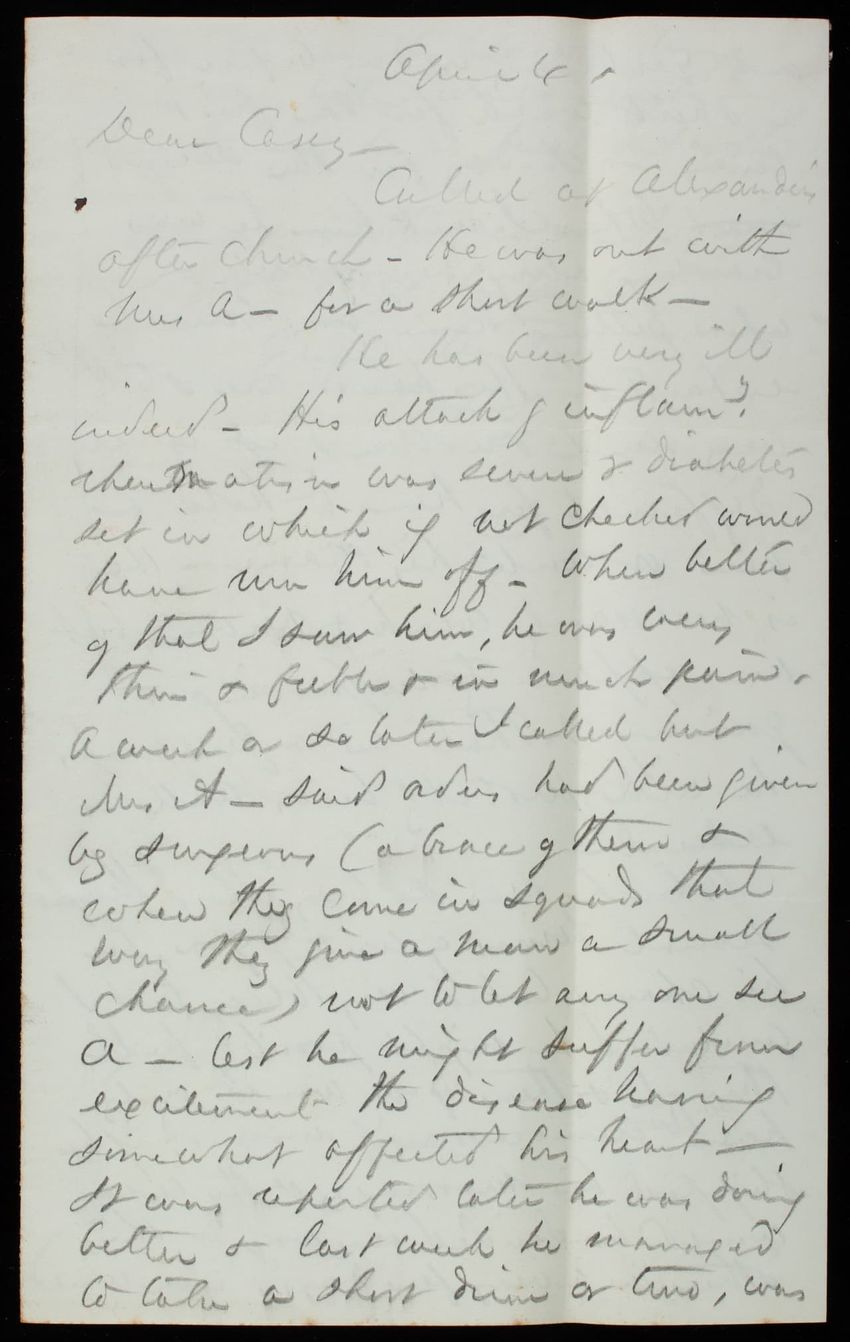 April 4.
Dear Casey -
Called at Alexander's
after church - He was out with
Mrs A - for a short walk -
He has been very ill
indeed - His attack of inflamy.
rheumatism was severe & diabetes
set in which if not checked would
have run him off - When better
of that I saw him, he was very
thin & feeble & in much pain.
A week or so later I called but
Mrs A - said orders had been given
by surgeons (a brace of them &
when they come in squads that
way they give a man a small
chance) not to let any one see
A - lest he might suffer from
excitement the disease having
somewhat affected his heart -
It was reported later he was doing
better & last week he managed
to take a short drive or two, was